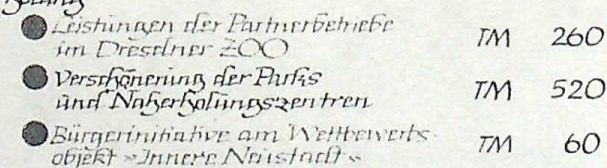 holung
Leistungen der Partnerbetriebe
im Dresdner ZOO TM 260
Verschönerung der Parks
und Naherholungszentren TM 520
Bürgerinitiative am Wettbewerbs-
objekt »Innere Neustadt« TM 60